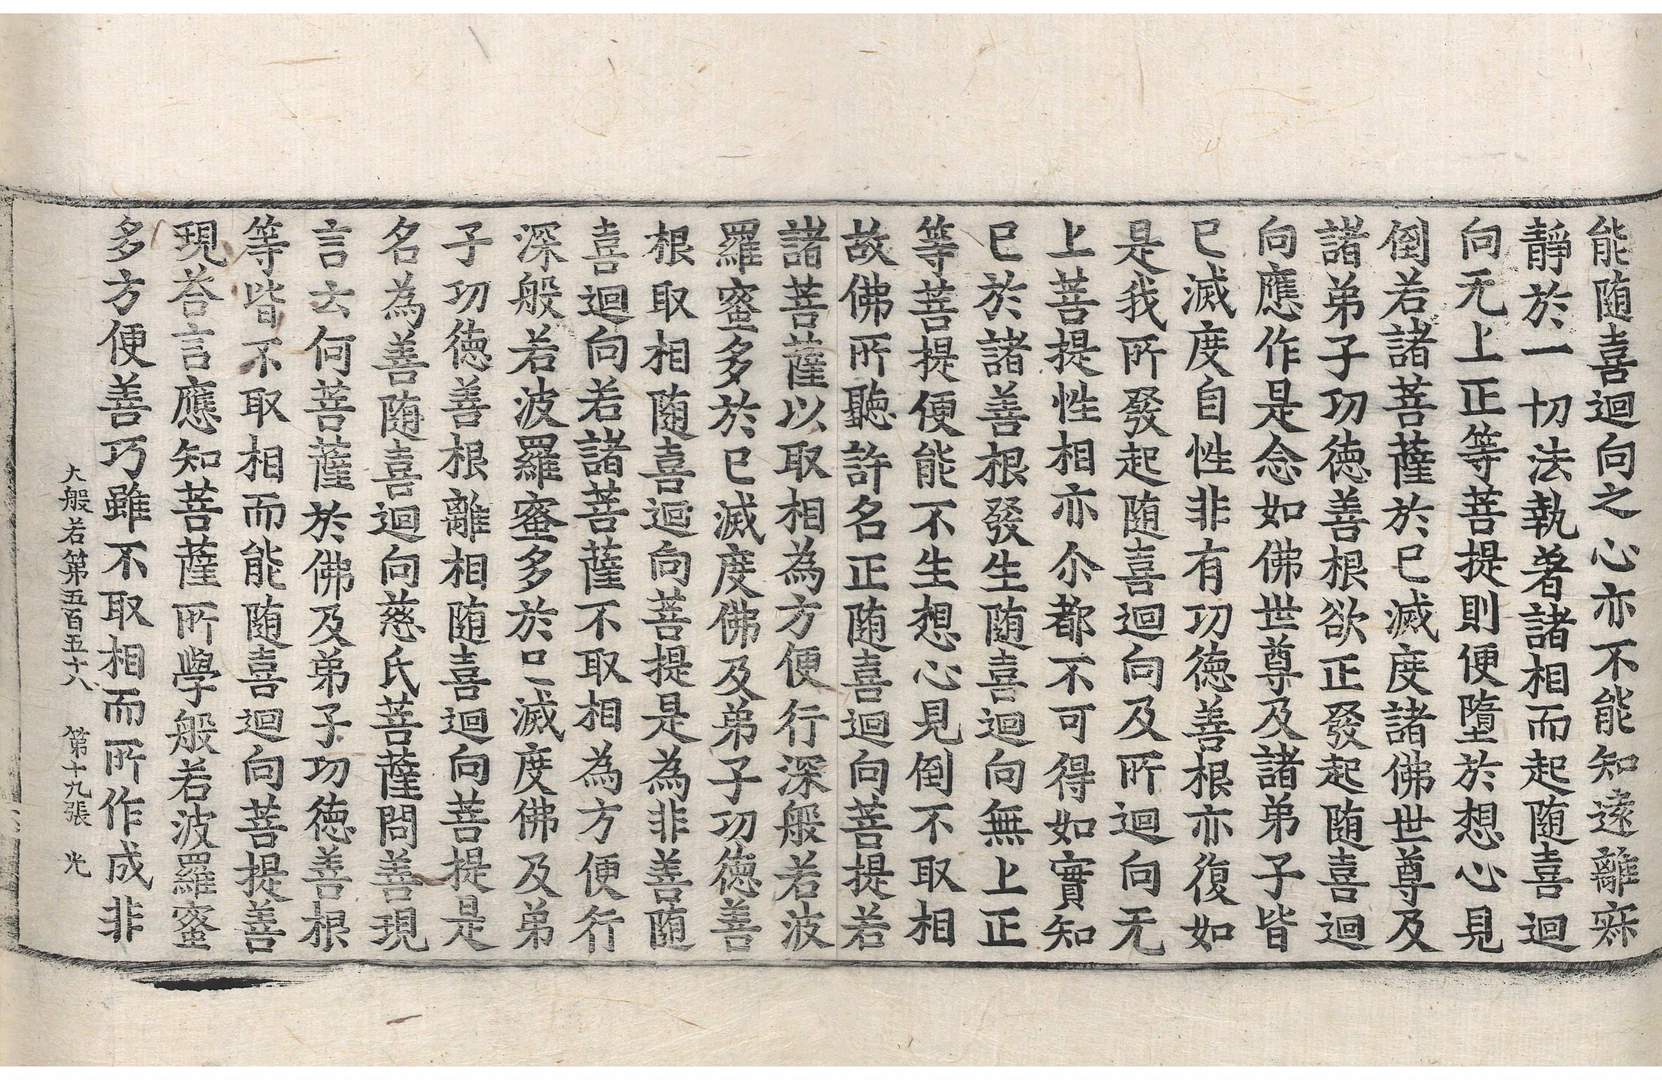 能随喜迴向之心亦不能知遠離寂
靜於一切法執著諸相而起随喜迴
向无上正等菩提則便墮於想心見
倒若諸菩薩於已滅度諸佛世尊及
諸弟子功徳善根欲正發起随喜迴
向應作是念如佛世尊及諸弟子皆
已滅度自性非有功徳善根亦復如
是我所發起随喜迴向及所迴向无
上菩提性相亦尒都不可得如實知
已於諸善根發生随喜迴向無上正
等菩提便能不生想心見倒不取相
故佛所聽許名正随喜迴向菩提若
諸菩薩以取相為方便行深般若波
羅蜜多於已滅度佛及弟子功徳善
根取相随喜迴向菩提是為非善随
喜迴向若諸菩薩不取相為方便行
深般若波羅蜜多於已滅度佛及弟
子功徳善根離相随喜迴向菩提是
名為善随喜迴向慈氏菩薩問善現
言云何菩薩於佛及弟子功徳善根
等皆不取相而能随喜迴向菩提善
現荅言應知菩薩所學般若波羅蜜
多方便善巧雖不取相而所作成非
大般若第五百五十八 第十九張 光